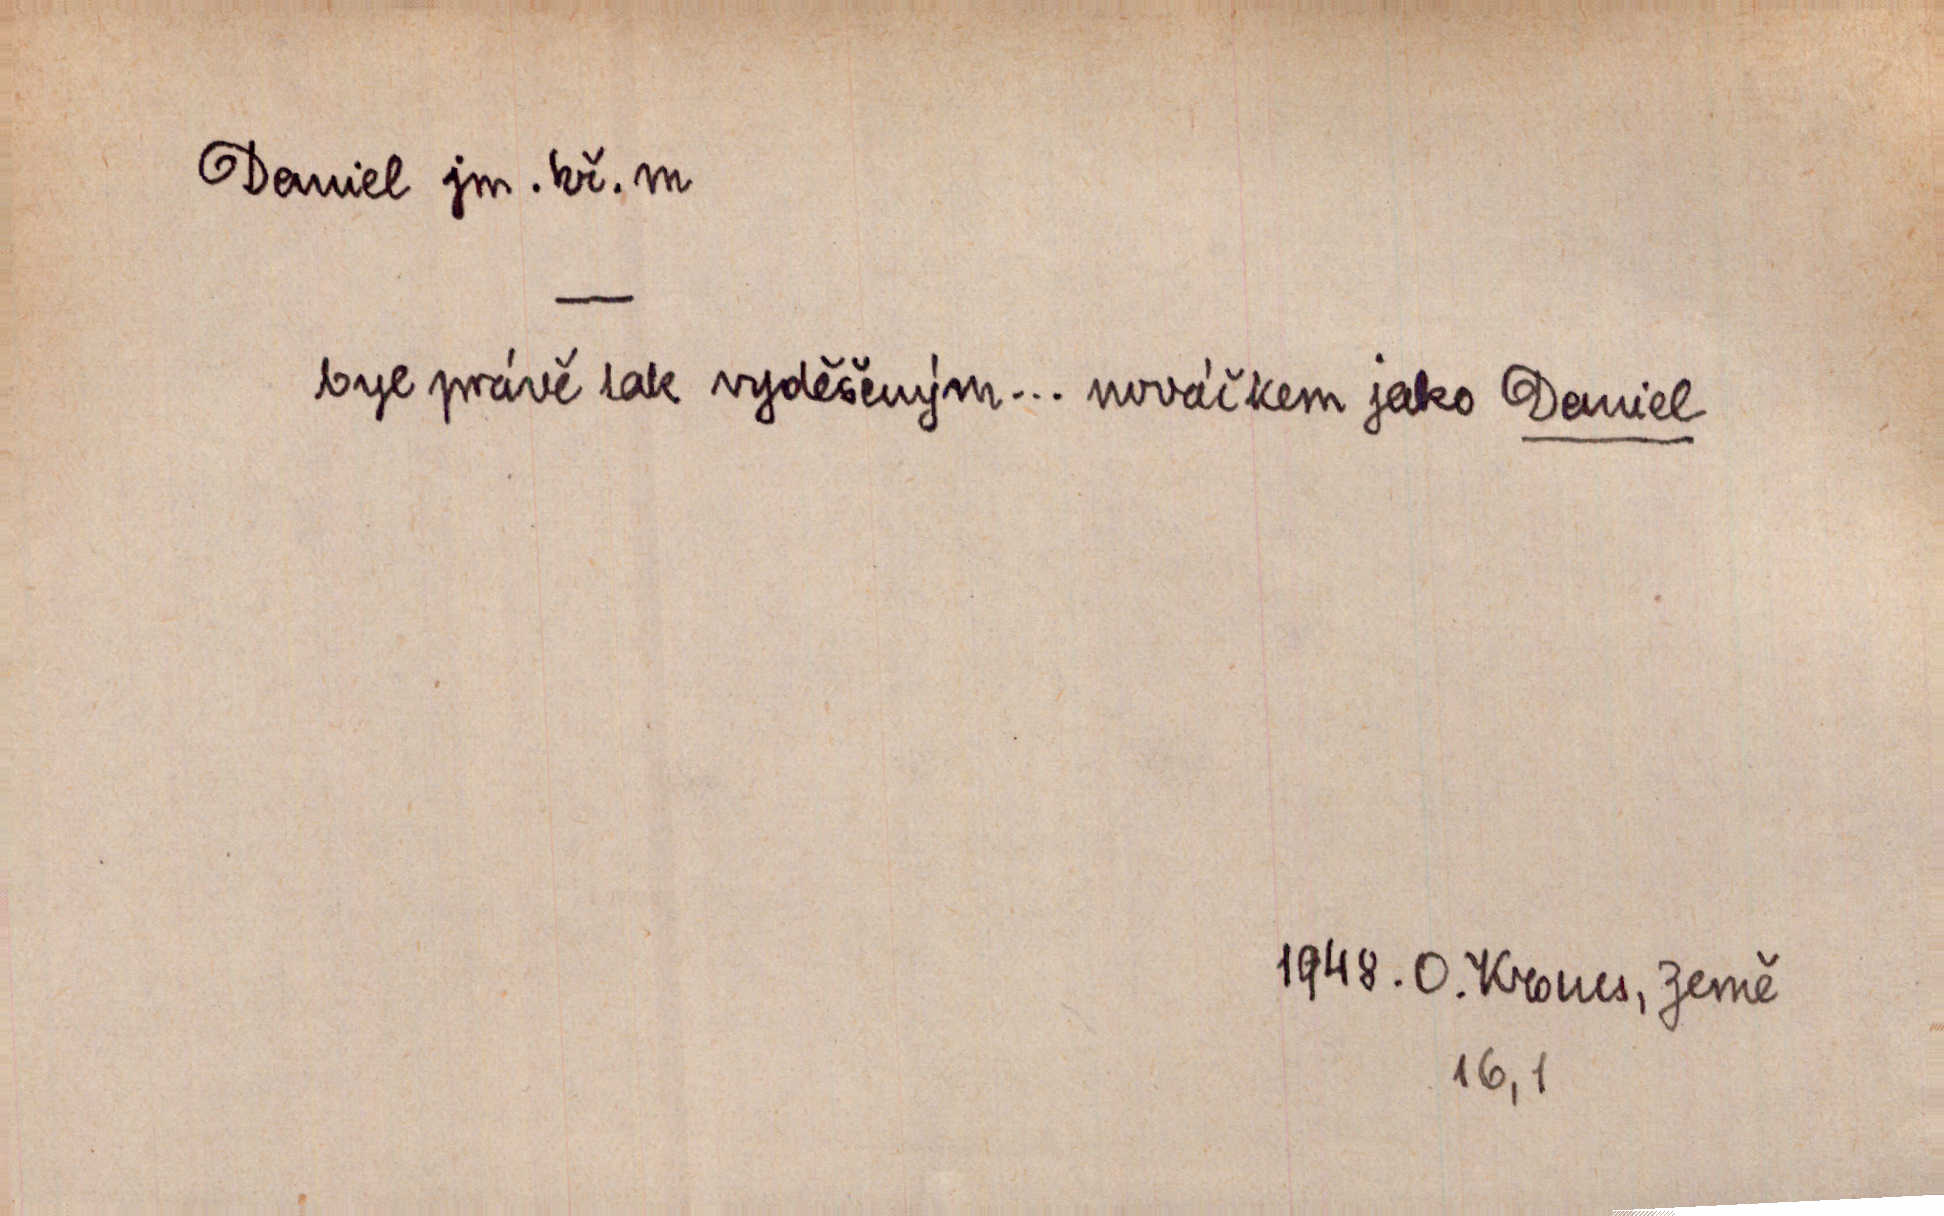 Daniel jm. kř. m
—
byl právě tak vyděšeným... nováčkem jako Daniel
1948. O. Kraus, Země
16,1